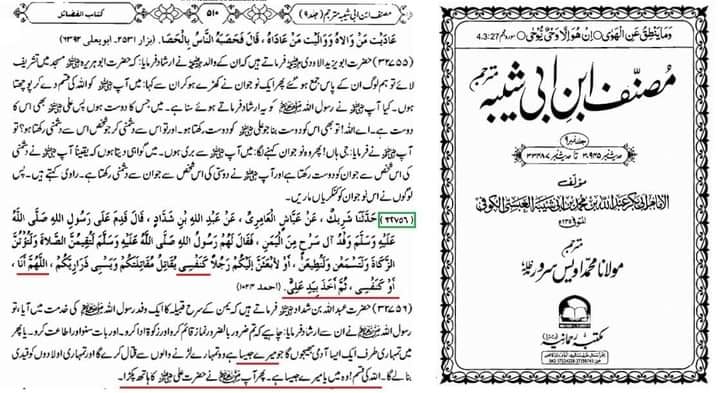 وَمَا يَنْطِقُ عَنِ الْهَوٰى ۞ اِنْ هُوَ اِلَّا وَحْیٌ يُّوْحٰى ۞ سورہ نجم 4.3:27
مُصنّف ابن ابی شیبہ مترجم
جلد نمبر ۹
مؤلّف
الامام ابی بکر عبداللہ بن محمد بن ابی شیبۃ العبسی الکوفی
المتوفی ۲۳۵ھ
مترجم
مولانا محمد اویس سرور
مکتبہ رحمانیہ
مصنف ابن ابی شیبہ مترجم (جلد ۹)
۵۱۰
کتاب الفضائل
عَادَيْتَ مَنْ وَالَاهُ وَوَالَيْتَ مَنْ عَادَاهُ، قَالَ فَحَصَبَهُ النَّاسُ بِالْحَصَا. (بزار ۲۵۳۱۔ ابویعلی ۶۳۹۲)
(۳۲۷۵۵) حضرت ابو یزید اودی فرماتے ہیں کہ ان کے والد نے ارشاد فرمایا: کہ حضرت ابو ہریرہ مسجد میں تشریف
لائے تو ہم لوگ ان کے پاس جمع ہو گئے پھر ایک نوجوان نے کھڑے ہو کر ان سے کہا: میں آپ کو اللہ کی قسم دے کر پوچھتا
ہوں۔ کیا آپ نے رسول اللہ ﷺ کو یہ ارشاد فرماتے ہوئے سنا ہے۔ میں جس کا دوست ہوں پس علی بھی اس کا
دوست ہے۔ اے اللہ! تو بھی اس کو دوست بنا جو علی کو دوست رکھتا ہو۔ اور تو اس سے دشمنی کر جو شخص اس سے دشمنی رکھتا ہو؟ تو
آپ نے فرمایا: جی ہاں! پھر وہ نوجوان کہنے لگا: میں آپ سے بری ہوں۔ میں گواہی دیتا ہوں کہ یقیناً آپ نے دشمنی
کی اس شخص سے جو ان سے دوستی رکھتا ہے اور آپ نے دوستی کی اس شخص سے جو ان سے دشمنی رکھتا ہے۔ راوی کہتے ہیں: پس
لوگوں نے اس نوجوان کو کنکریاں ماریں۔
(۳۲۷۵۶) حَدَّثَنَا شَرِيكٌ، عَنْ عَيَّاشٍ الْعَامِرِيِّ، عَنْ عَبْدِ اللهِ بْنِ شَدَّادٍ، قَالَ قَدِمَ عَلَى رَسُولِ اللهِ صَلَّى اللَّهُ
عَلَيْهِ وَسَلَّمَ وَفْدُ آلِ سَرْحٍ مِنَ الْيَمَنِ، فَقَالَ لَهُمْ رَسُولُ اللهِ صَلَّى اللَّهُ عَلَيْهِ وَسَلَّمَ لَتُقِيمُنَّ الصَّلَاةَ وَلَتُؤْتُنَّ
الزَّكَاةَ وَلَتَسْمَعُنَّ وَلَتُطِيعُنَّ، أَوْ لَأَبْعَثَنَّ إِلَيْكُمْ رَجُلًا كَنَفْسِي يُقَاتِلُ مُقَاتِلَتَكُمْ وَيَسْبِي ذَرَارِيَّكُمْ، اللَّهُمَّ أَنَا،
أَوْ كَنَفْسِي، ثُمَّ أَخَذَ بِيَدِ عَلِيٍّ. (احمد ۱۰۲۴)
(۳۲۷۵۶) حضرت عبداللہ بن شداد فرماتے ہیں کہ یمن کے سرح قبیلہ کا ایک وفد رسول اللہ ﷺ کی خدمت میں آیا، تو
رسول اللہ ﷺ نے ان سے ارشاد فرمایا: چاہیے کہ تم ضرور بالضرور نماز قائم کرو اور زکوٰۃ ادا کرو۔ اور بات سنو اور اطاعت کرو۔ یا پھر
میں تمہاری طرف ایک ایسا آدمی بھیجوں گا جو میرے جیسا ہے وہ تمہارے لڑنے والوں سے قتال کرے گا اور تمہاری اولادوں کو قیدی
بنا لے گا۔ اللہ کی قسم! وہ میں یا میرے جیسا ہے۔ پھر آپ ﷺ نے حضرت علی کا ہاتھ پکڑا۔